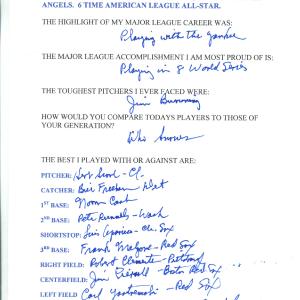 ANGELS. 6 TIME AMERICAN LEAGUE ALL-STAR.
THE HIGHLIGHT OF MY MAJOR LEAGUE CAREER WAS:
Playing with the Yankee
THE MAJOR LEAGUE ACCOMPLISHMENT I AM MOST PROUD OF IS:
Playing in 8 World Series
THE TOUGHEST PITCHERS I EVER FACED WERE:
Jim Bunning
HOW WOULD YOU COMPARE TODAYS PLAYERS TO THOSE
OF YOUR GENERATION?
Who Knows
THE BEST I PLAYED WITH OR AGAINST ARE:
PITCHER: Score - Cl.
CATCHER: Bill Freehan Det
1ST BASE: Norm Cash
2ND BASE: Pete Runnels - Wash
SHORTSTOP: Luis Aparicio - Ch. Sox
3RD BASE: Frank Malzone - Red Sox
RIGHT FIELD: Robert Clemente - Pittsburg
CENTERFIELD: Jim Piersall - Boston Red Sox
LEFT FIELD: Carl Yastrzemski - Red Sox